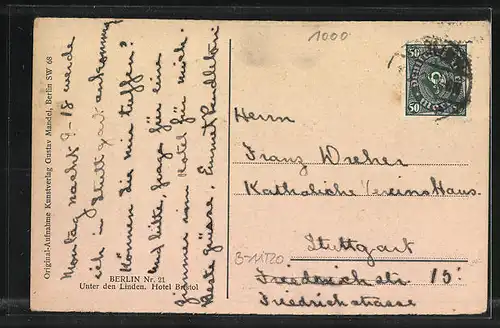 1000
Original-Aufnahme Kunstverlag Gustav Mandel, Berlin SW 68
Montag nacht 9-18 werde
ich in Stuttgart ankommen,
Können Sie mir treffen?
Und bitte, frage für eine
Zimmer im Hotel für mich.
Beste Grüsse, Emmet
BERLIN Nr. 21
Unter den Linden. Hotel Bristol
50
50
Deutsches Reich
Herrn
Franz Dreher
Katholische Vereinshaus.
Stuttgart
Friedrich str. 15.
Friedrichstrasse